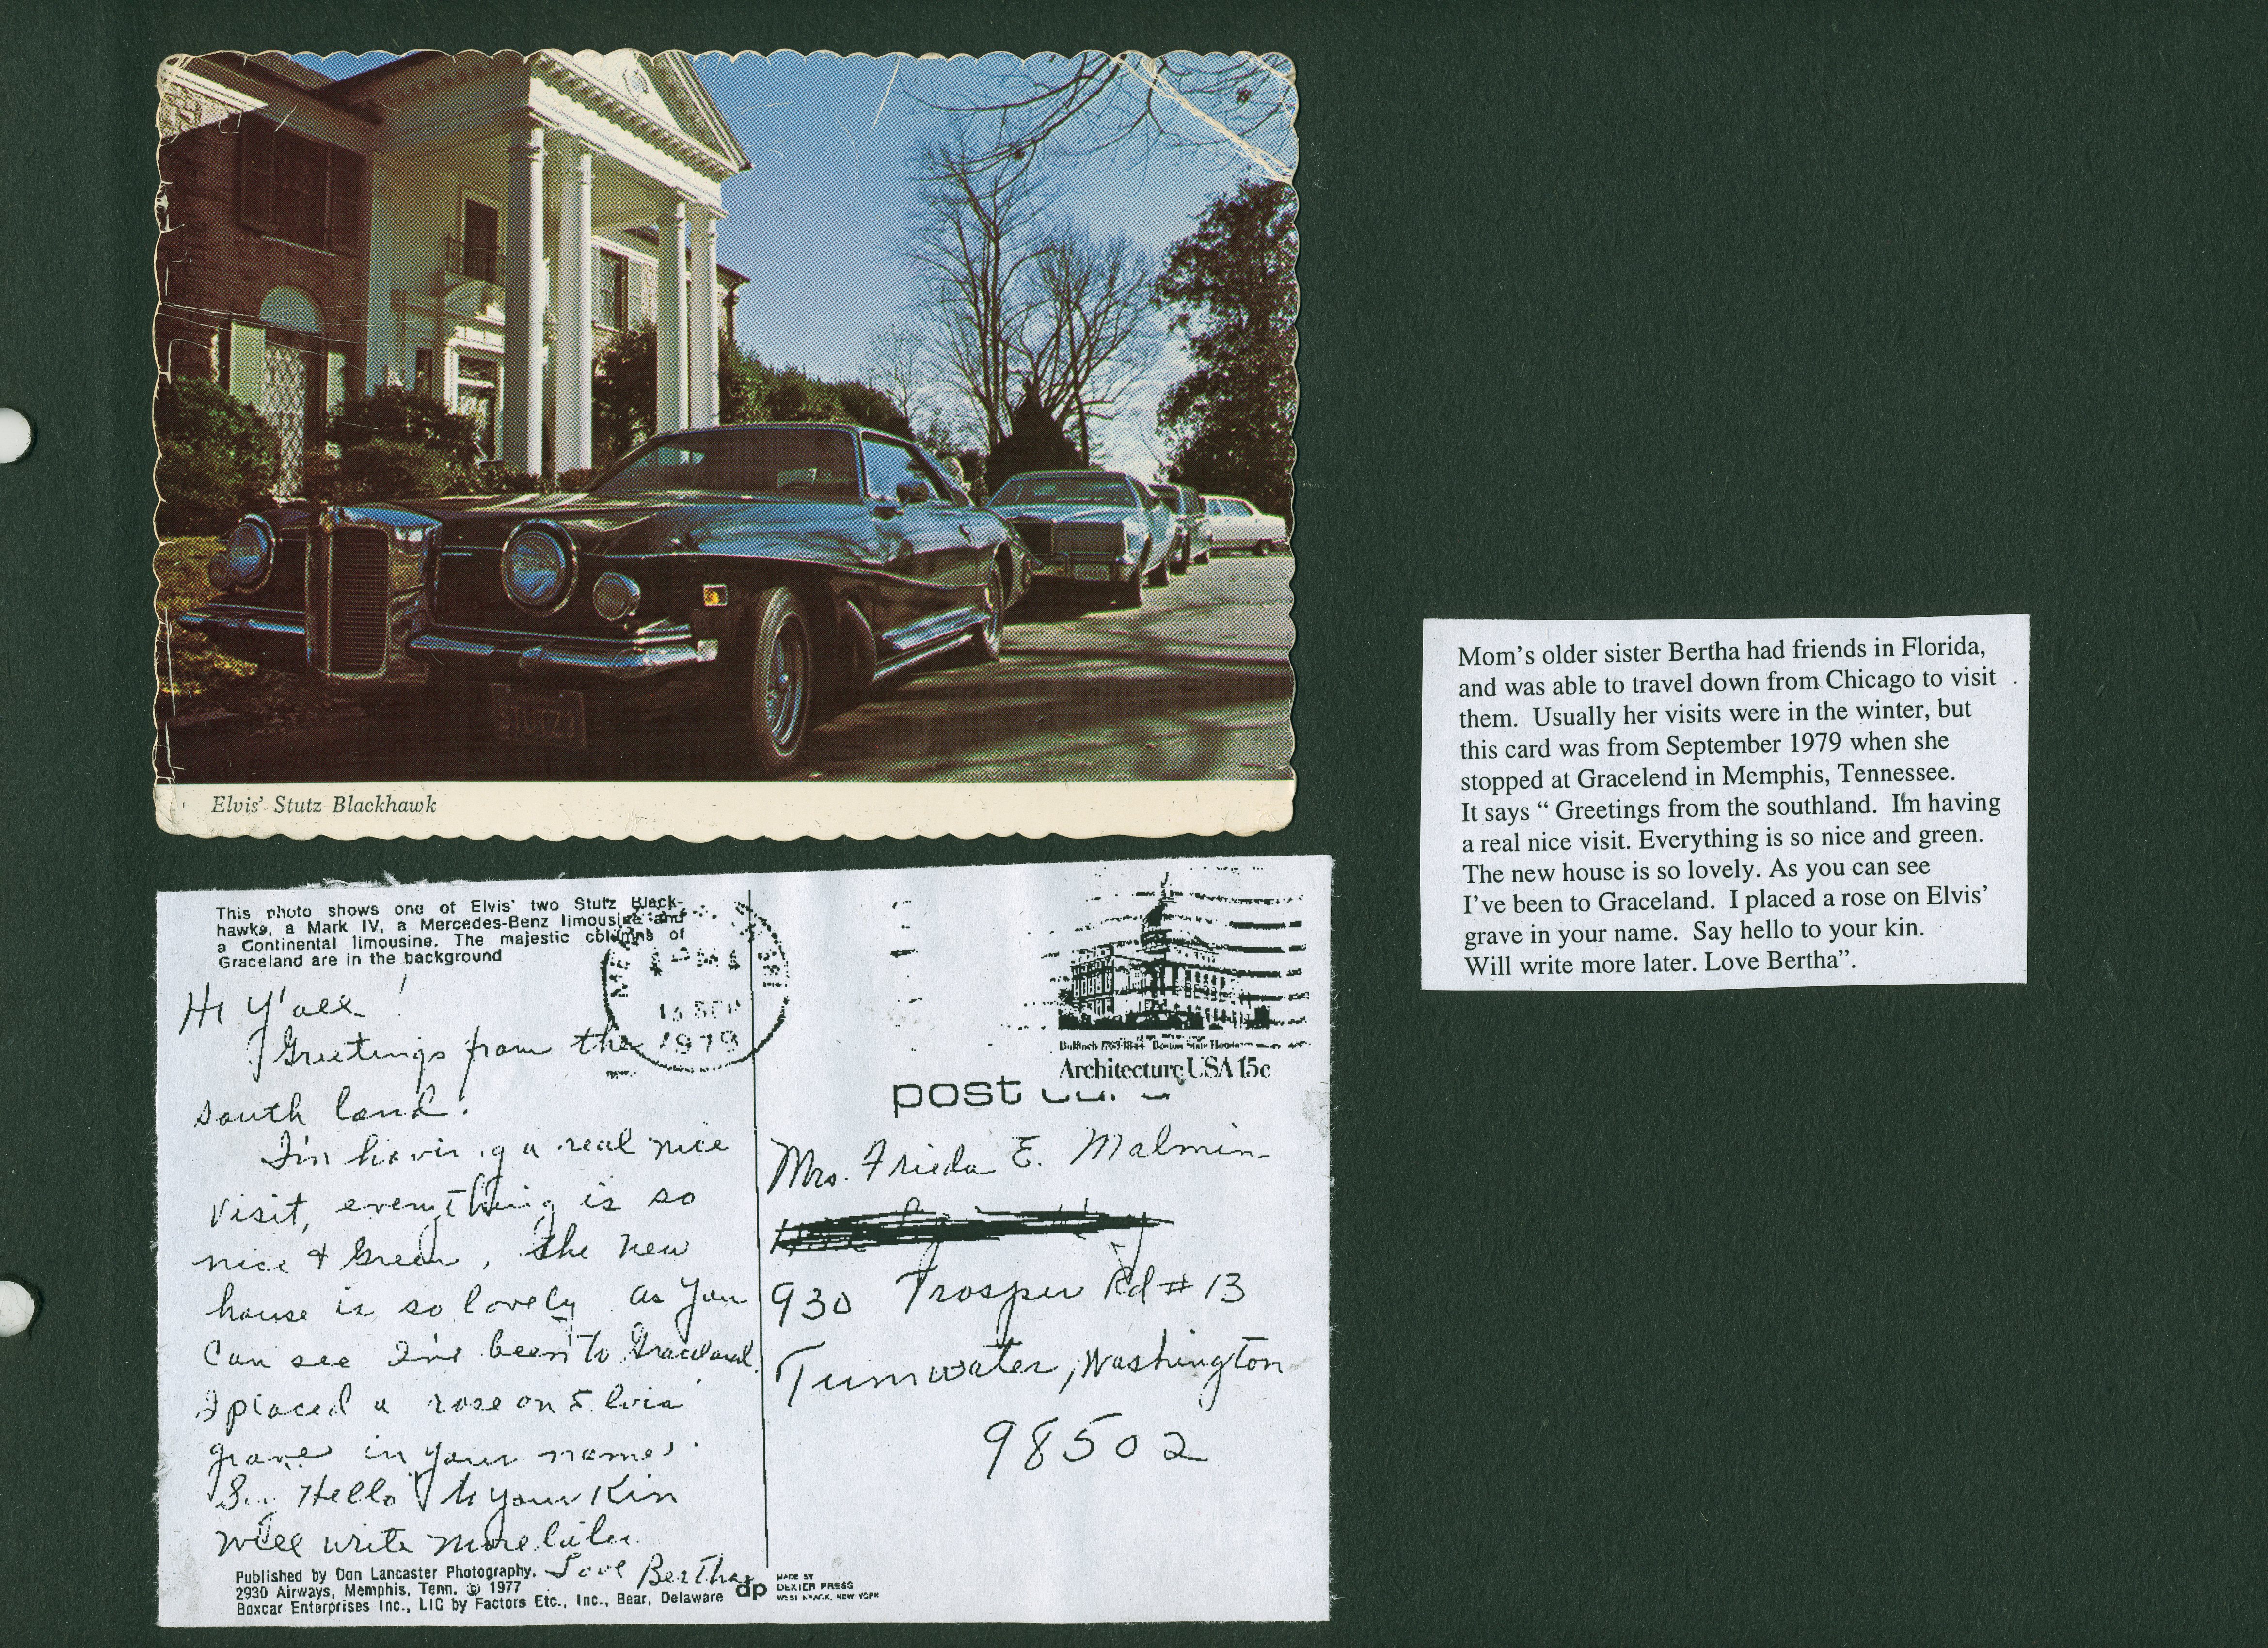 STUTZ3
Elvis' Stutz Blackhawk
This photo shows one of Elvis' two Stutz Black-
hawks, a Mark IV, a Mercedes-Benz limousine and
a Continental limousine. The majestic columns of
Graceland are in the background
SEP
1979
Architecture USA 15c
post
Hi Y'all!
Greetings from the
south land.
I'm having a real nice
visit, everything is so
nice & Green, the new
house is so lovely. as you
can see I've been to Graceland.
I placed a rose on Elvis'
grave in your name.
Hello to your Kin
will write more later.
Love Bertha
Mrs. Frieda E. Malmin
930 Trosper Rd # 13
Tumwater, Washington
98502
Published by Don Lancaster Photography.
2930 Airways, Memphis, Tenn. © 1977
Boxcar Enterprises Inc., LIC by Factors Etc., Inc., Bear, Delaware
dp
MADE BY
DEXTER PRESS
WEST NYACK, NEW YORK
Mom's older sister Bertha had friends in Florida,
and was able to travel down from Chicago to visit
them. Usually her visits were in the winter, but
this card was from September 1979 when she
stopped at Gracelend in Memphis, Tennessee.
It says “ Greetings from the southland. I'm having
a real nice visit. Everything is so nice and green.
The new house is so lovely. As you can see
I've been to Graceland. I placed a rose on Elvis'
grave in your name. Say hello to your kin.
Will write more later. Love Bertha”.